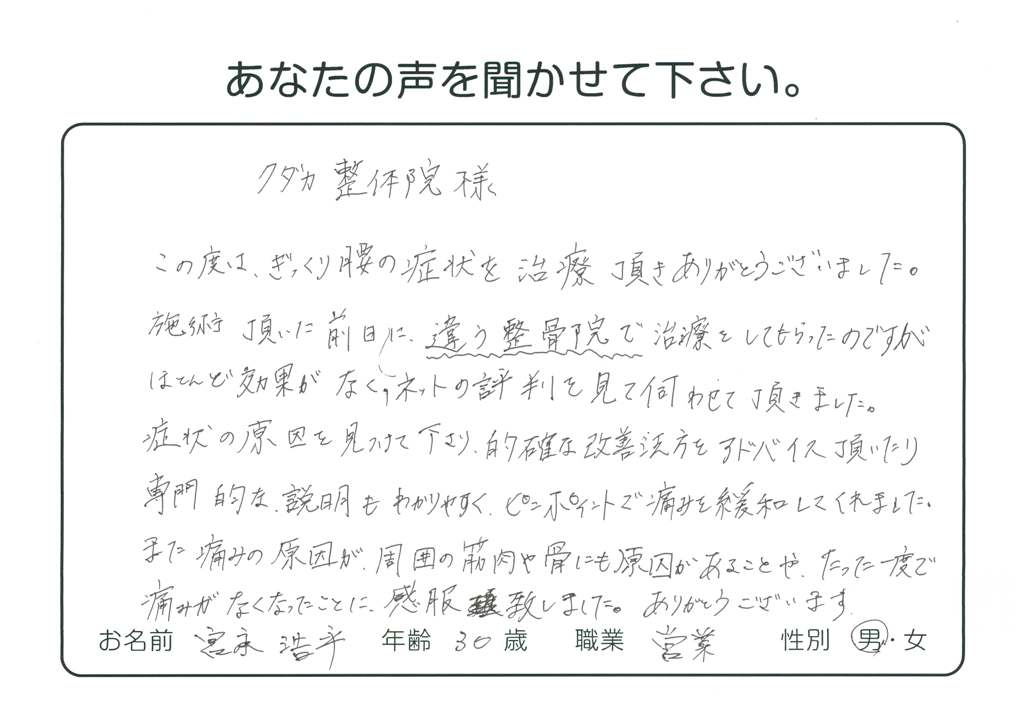 あなたの声を聞かせて下さい。
クダカ整体院様
この度は、ぎっくり腰の症状を治療頂きありがとうございました。
施術頂いた前日に、違う整骨院で治療をしてもらったのですが
ほとんど効果がなく、ネットの評判を見て伺わせて頂きました。
症状の原因を見つけて下さり、的確な改善法方をアドバイス頂いたり
専門的な説明もわかりやすく、ピンポイントで痛みを緩和してくれました。
また痛みの原因が、周囲の筋肉や骨にも原因があることや、たった一度で
痛みがなくなったことに、感服致しました。ありがとうございます
お名前 宮永 浩平 年齢 30歳 職業 営業 性別 男・女